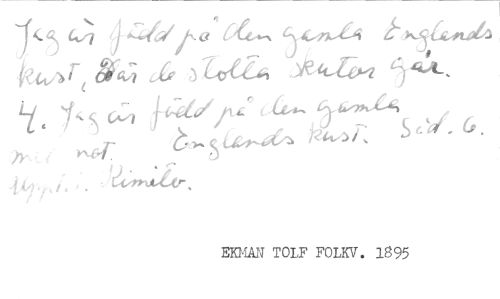 Jag är född på den gamla Englands
kust, Där de stolta skutor går.
4. Jag är född på den gamla
med not. Englands kust. Sid. 6.
Uppt. i. Kimito.
EKMAN TOLF FOLKV. 1895